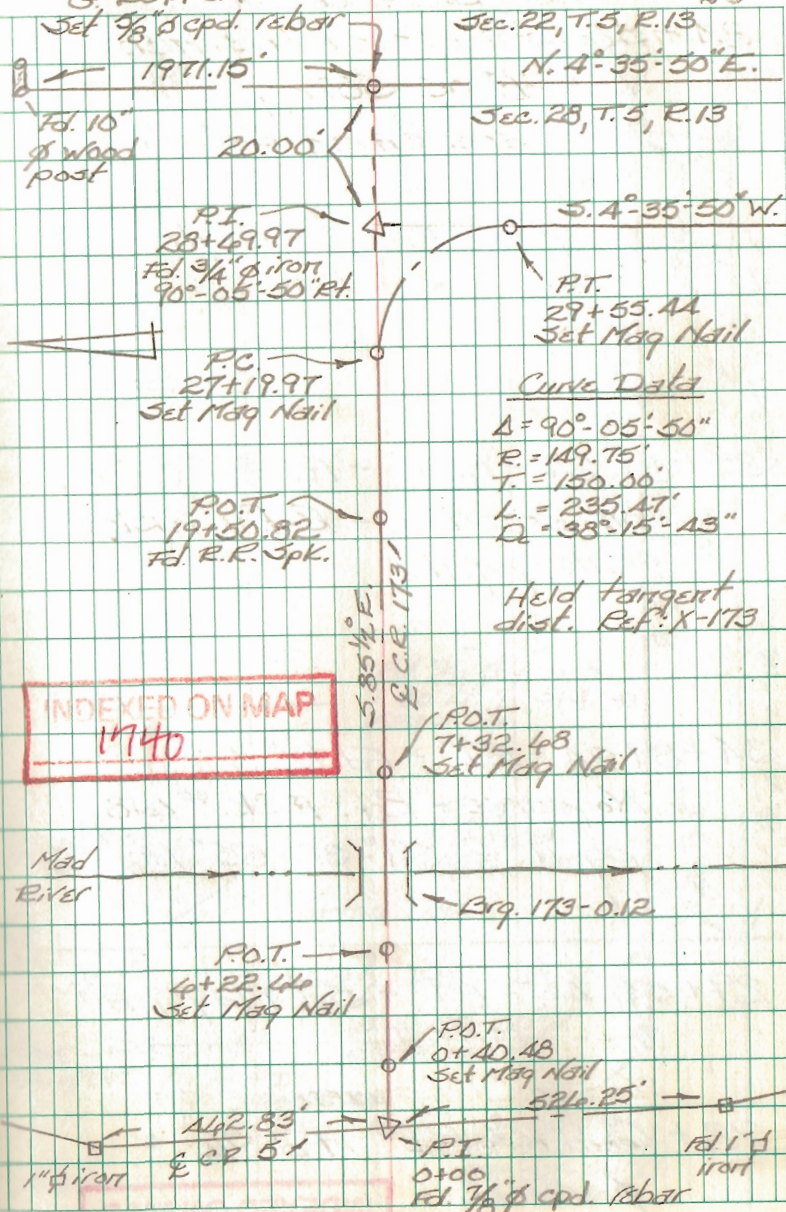 Set 5/8" ø cpd. rebar
Sec. 22, T.5, R.13
1971.15'
N. 4°-35'-50" E.
Fd. 10"
ø wood
post
20.00'
Sec. 28, T.5, R.13
S. 4°-35'-50" W.
P.I.
28+69.97
Fd. 3/4" ø iron
90°-05'-50" Rt.
P.T.
29+55.44
Set Mag Nail
P.C.
27+19.97
Set Mag Nail
Curve Data
Δ = 90°-05'-50"
R. = 149.75'
T. = 150.00'
L = 235.47'
Dc = 38°-15'-43"
P.O.T.
19+50.82
Fd. R.R. Spk.
Held tangent
dist. Ref: X-173
S.85½° E.
℄ C.R. 173
INDEXED ON MAP
1740
P.O.T.
7+32.48
Set Mag Nail
Mad
River
Brg. 173-0.12
P.O.T.
6+22.66
Set Mag Nail
P.O.T.
0+40.48
Set Mag Nail
462.83'
526.25'
℄ CR 5
1" ø iron
P.I.
0+00
Fd. 7/8" ø cpd. rebar
Fd. 1" ø
iron